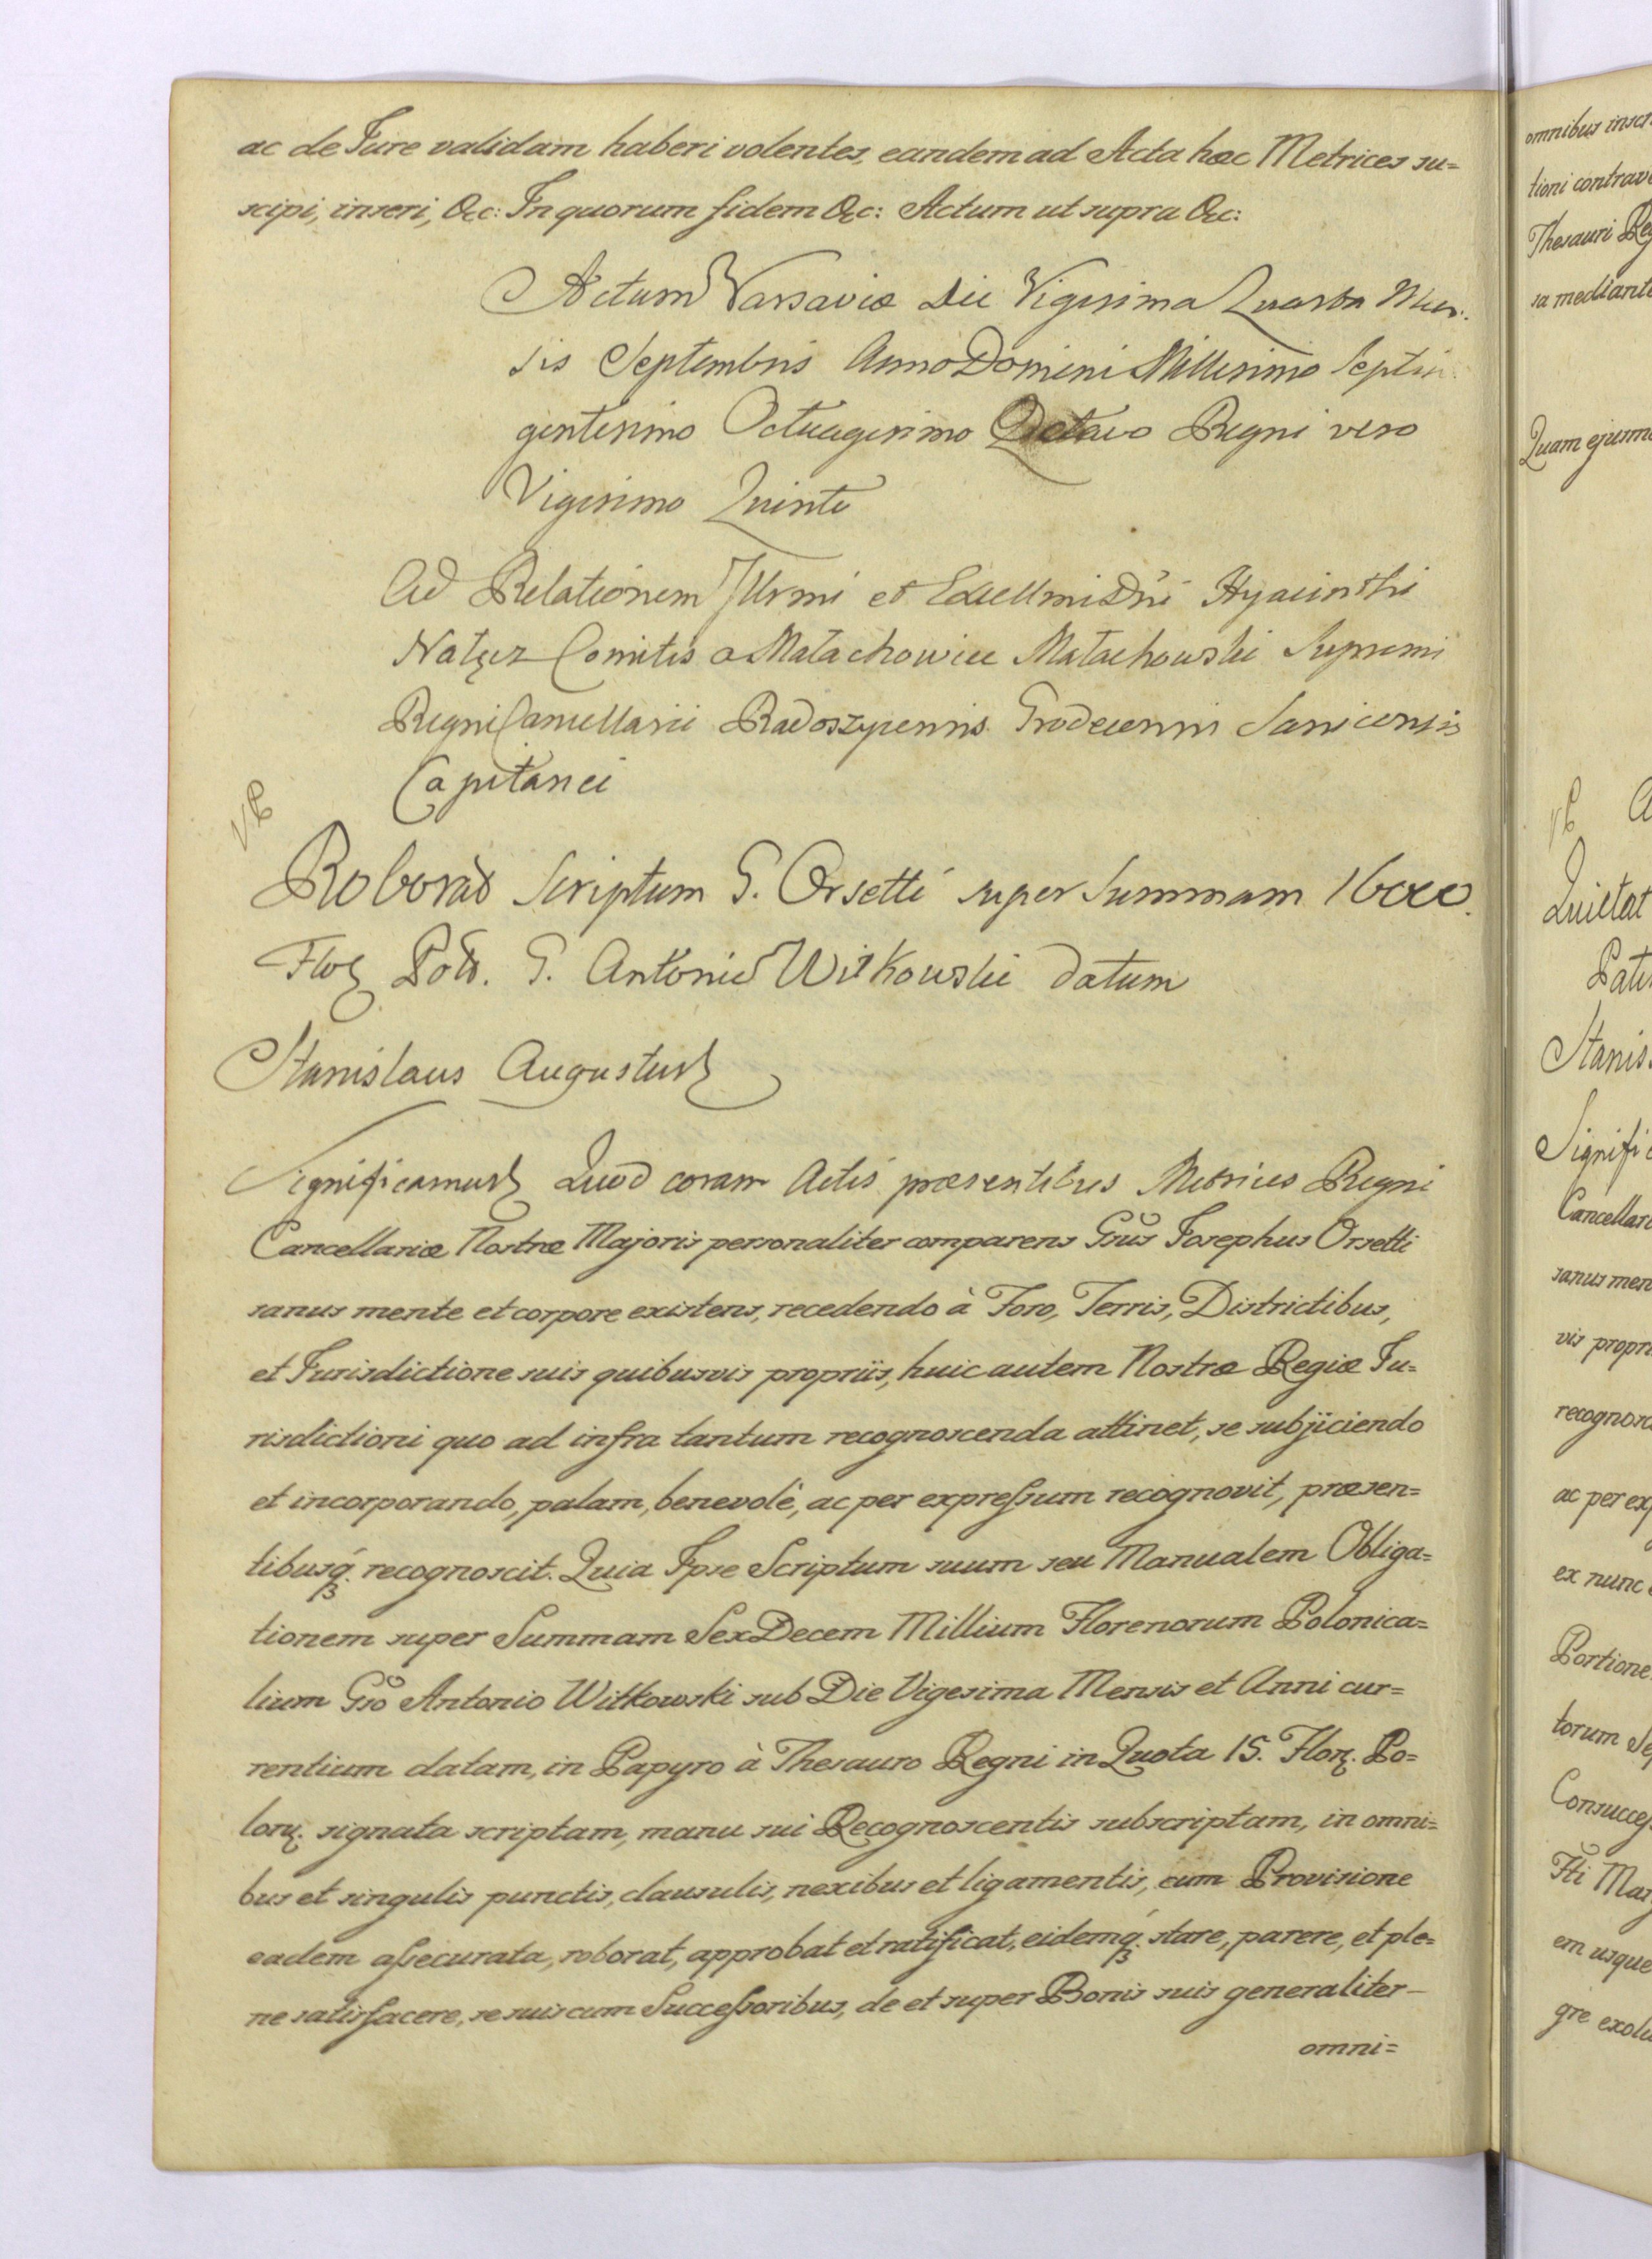 ac de Jure validam haberi volentes, eandem ad Acta hæc Metrices su=
scipi, inseri, &c: In quorum fidem &c: Actum ut supra &c:
Actum Varsaviæ Die Vigesima Quarta Men=
sis Septembris Anno Domini Millesimo Septin
gentesimo Octuagesimo Octavo Regni vero
Vigesimo Quinto
Ad Relationem Illrmi et Excellmi Dñi Hyacinthi
Nałęcz Comitis a Małachowice Małachowski Supremi
Regni Cancellarii Radoszycensis Grodecensis Sanicensis
Capitanei
Roborao Scriptum G. Orsetti super Summam 16000.
Flor Pol. G. Antonio Witkowski datum
Stanislaus Augustus
Significamus Quod coram Actis præsentibus Metrices Regni
Cancellariæ Nostræ Majoris personaliter comparens Gsus Josephus Orsetti
sanus mente et corpore existens, recedendo à Foro, Terris, Districtibus,
et Jurisdictione suis quibusvis propriis, huic autem Nostræ Regiæ Ju=
risdictioni quo ad infra tantum recognoscenda attinet, se subjiciendo
et incorporando, palam, benevolè, ac per expreſsum recognovit, præsen=
tibusq́. recognoscit. Quia Ipse Scriptum suum seu Manualem Obliga=
tionem super Summam SexDecem Millium Florenorum Polonica=
lium Gso Antonio Witkowski sub Die Vigesima Mensis et Anni cur=
rentium datam, in Papyro à Thesauro Regni in Quota 15. Flor. Po=
lor. signata scriptam, manu sui Recognoscentis subscriptam, in omni=
bus et singulis punctis, clausulis, nexibus et ligamentis, cum Provisione
eadem aſsecurata, roborat, approbat et ratificat, eidemq́. stare, parere, et ple=
ne satisfacere, se suis cum Succeſsoribus, de et super Bonis suis generaliter –
omni=
omnibus
tioni
Thesauri
sa mediante
Quam
Quietat
Stanis
Signific
Cancellari
sanus men
vis propri
recognosc
ac per ex
ex nunc
Portione
torum
Consucces
em usque
gre